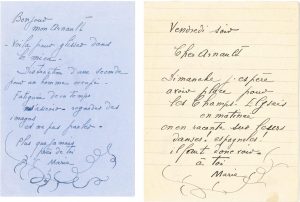 Bonjour
mon Arnault
Voilà pour glisser dans
le mien.
Distraction d'une seconde
pour un homme occupé.
Fatiguée de ce temps
m'asseoir regarder des
images
et ne pas parler.
Plus que jamais
près de toi
Marie
Vendredi soir
Cher Arnault
Dimanche j'espère
avoir place pour
les Champs. Elysées
en matinée
on en raconte sur leurs
danses espagnoles.
il faut donc voir
à toi
Marie